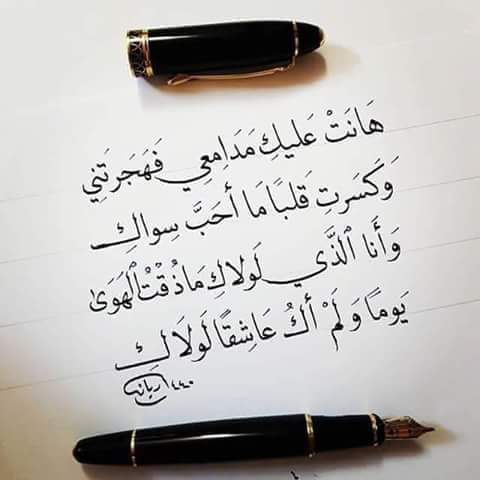 هَانَتْ عَليكِ مَدَامِعي فَهَجَرتَِني
وَكَسَرتِ قَلبًا مَا أحَبَّ سِواكِ
وَأنا الَّذي لَولاكِ مَا ذُقْتُ الهَوَىٰ
يَومًا وَلَمْ أكُ عَاشِقًا لَولَاكِ
١٤٤٠